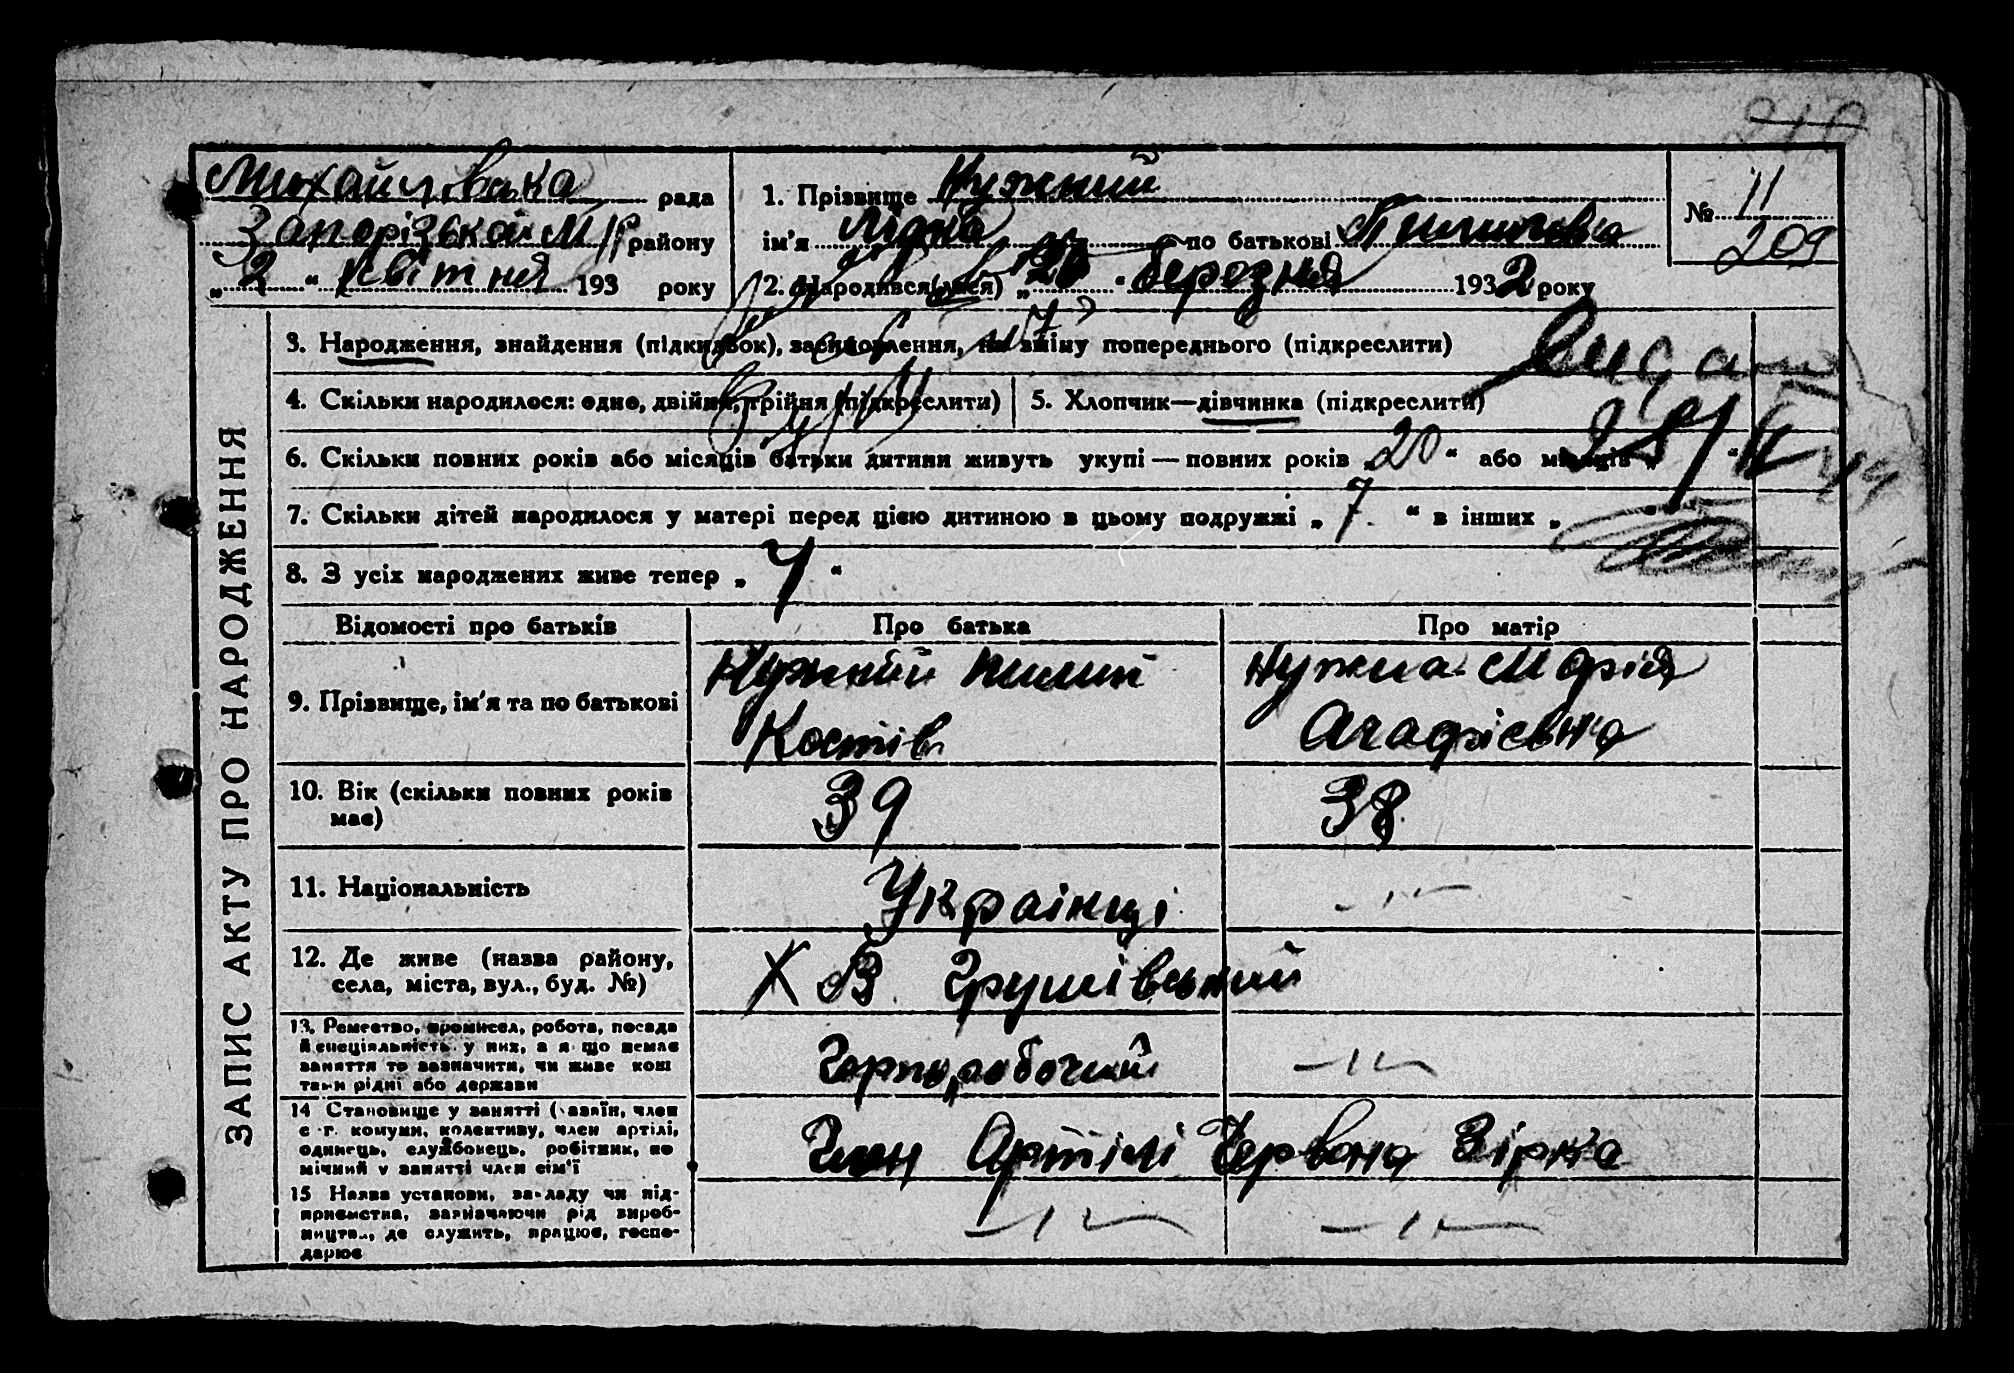 210
Михайловська рада
Запорізька МР району
„ 2 “ Квітня 193 року
1. Прізвище Нужний
ім'я Лідія по батькові Пилипівна
2. Народився(лася) „ 26 “ березня 1932 року
№ 11
209
3. Народження, знайдення (підкидьок), засиновлення, на зміну попереднього (підкреслити)
Видано
4. Скільки народилося: одно, двійня, трійня (підкреслити)
5. Хлопчик—дівчинка (підкреслити)
6. Скільки повних років або місяців батьки дитини живуть укупі — повних років „ 20 “ або місяців „ “
7. Скільки дітей народилося у матері перед цією дитиною в цьому подружжі „ 7. “ в інших „
8. З усіх народжених живе тепер „ 4 “
ЗАПИС АКТУ ПРО НАРОДЖЕННЯ
Відомості про батьків
Про батька
Про матір
9. Прізвище, ім'я та по батькові
Нужний Пилип
Костів
Нужна Марія
Агафієвна
10. Вік (скільки повних років
має)
39
38
11. Національність
Українці
—"—
12. Де живе (назва району,
села, міста, вул., буд. №)
Х В Грушівський
13. Ремество, промисел, робота, посада
й спеціяльність у них, а якщо немає
заняття то зазначити, чи живе кош
тами рідні або держави
робочий
—"—
14 Становище у занятті (хазяїн, член
с.-г. комуни, колективу, член артілі,
одинець, службовець, робітник, по
мічний у занятті член сім'ї
Член Артілі Червона Зірка
15 Назва установи, закладу чи під-
приємства, зазначаючи рід вироб-
ництва, де служить, працює, госпо-
дарює
—"—
—"—